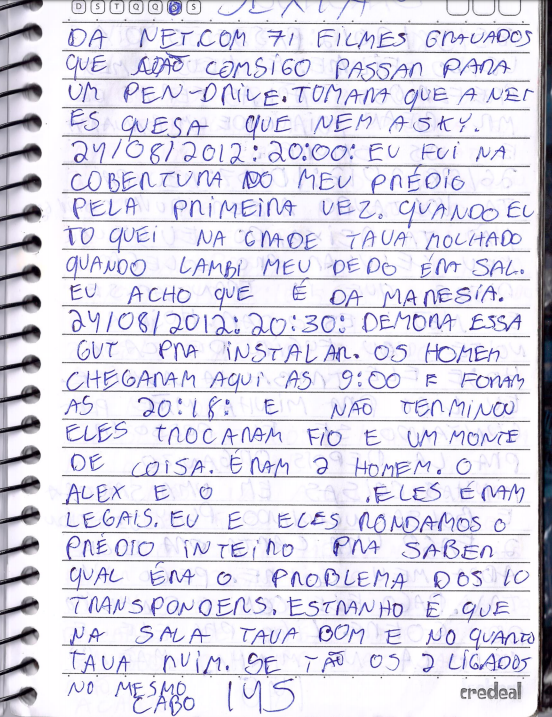 D S T Q Q S S
SEXTA
DA NET.COM 71 FILMES GRAVADOS
QUE NÃO COMSIGO PASSAR PARA
UM PEN-DRIVE. TOMARA QUE A NET
ES QUESA QUE NEM A SKY.
24/08/2012: 20:00: EU FUI NA
COBERTURA DO MEU PRÉDIO
PELA PRIMEIRA VEZ. QUANDO EU
TO QUEI NA GRADE TAVA MOLHADO
QUANDO LAMBI MEU DEDO ÉRA SAL.
EU ACHO QUE É DA MARESIA.
24/08/2012: 20:30: DEMORA ESSA
GVT PRA INSTALAR. OS HOMEM
CHEGARAM AQUI. AS 9:00 E FORAM
AS 20:18: E NÃO TERMINOU
ELES TROCARAM FIO E UM MONTE
DE COISA. ÉRAM 2 HOMEM. O
ALEX E O .ELES ÉRAM
LEGAIS. EU E ELES RONDAMOS O
PRÉDIO INTEIRO PRA SABER
QUAL ÉRA O PROBLEMA DOS 10
TRANSPONDERS. ESTRANHO É QUE
NA SALA TAVA BOM E NO QUARTO
TAVA RUIM. SE TÃO OS 2 LIGADOS
NO MESMO
CABO 145 credeal